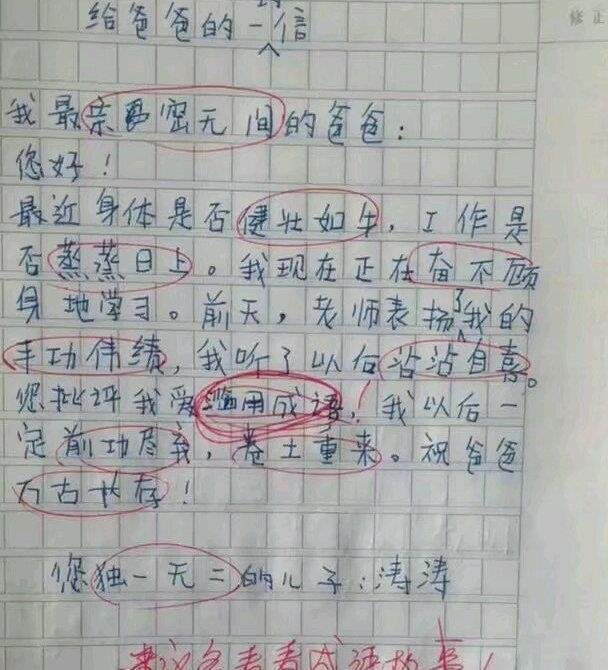 给爸爸的一封信
修正
我最亲密无间的爸爸：
您好！
最近身体是否健壮如牛，工作是
否蒸蒸日上。我现在正在奋不顾
身地学习。前天，老师表扬了我的
丰功伟绩，我听了以后沾沾自喜。
您批评我爱滥用成语，我以后一
定前功尽弃，卷土重来。祝爸爸
万古长存！
您独一无二的儿子：涛涛
建议多看看成语故事！